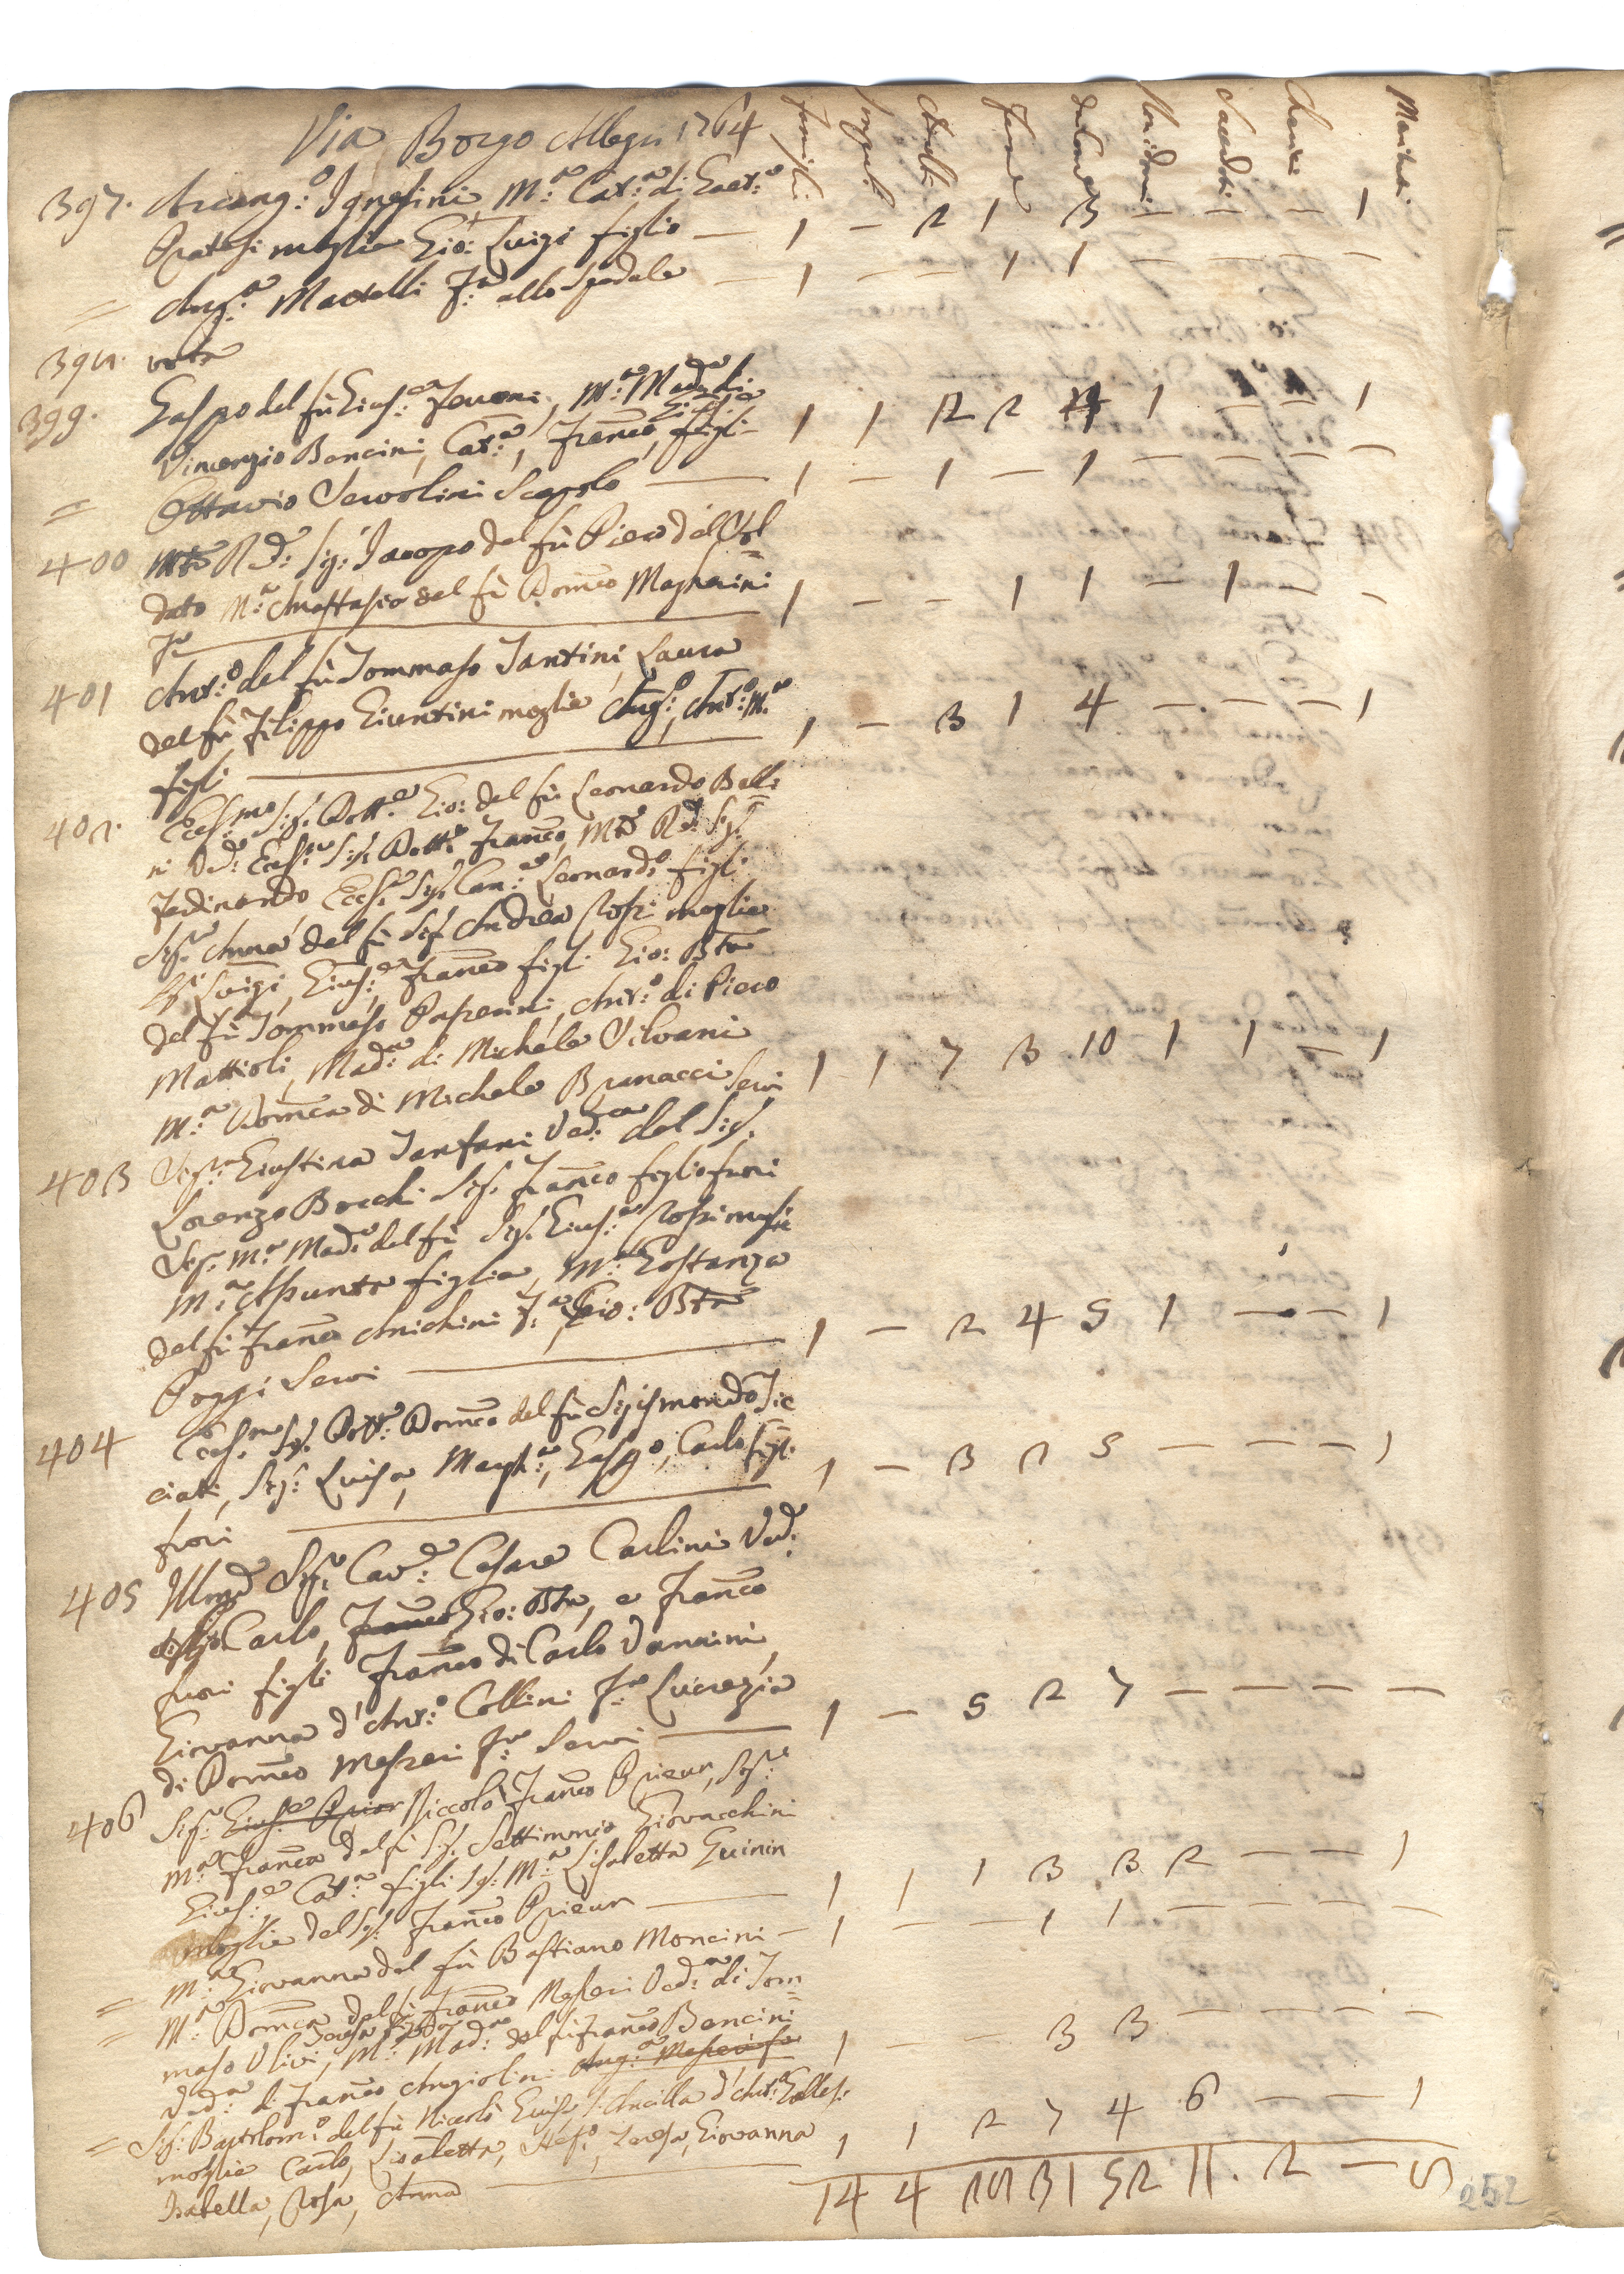 Via Borgo Allegri 1764
Famiglie Anime Maschi Femine da Com: Sacerdoti Mariti
397. Arcang:o Ignesini M:a Cat:a di Gaet:o
Pratesi moglie Gio: Luigi figlio — 1 — 2 1 3 — — — 1
= Ang:a Martelli F:a allo Spedale — 1 — — 1 1 — — — —
398. vota
399. Gaspo del fù Gius:e Feroni, M:a Mad:a di
Vincenzio Bencini, Cat:a, Fran:co, figli 1 1 2 2 4 1 — — 1
= Ottavio Servolini Scapolo — 1 — 1 — 1 — — — —
400 Mto Rd: Sig: Jacopo del fù Piero del Vol=
dato M:a Anastasia del fù Dom:co Magherini
F:a — 1 — — 1 1 — 1 — —
401 Ant:o del fù Tommaso Tantini, Laura
del fù Filippo Giuntini moglie Ang:o, Ant:o M:a
figli — 1 — 3 1 4 — — — 1
402. Ecc:mo Sig. Dott:e Gio: del fù Leonardo Belli=
ni Ved:o Ecc:mo Sig. Dott:e Fran:co, Mto Rd: Sig.
Ferdinando Ecc:o Sig. Can:e Leonardo figli
Sig:ra Anna del fù Sig. Andrea Rossi moglie
Luigi, Gius:e, Fran:co figli Gio: Bta
del fù Tommaso Paperini, Ant:o di Piero
Mattioli, Mad:a di Michele Silvani
M:a Dom:ca di Michele Brunacci Servi 1 1 7 3 10 1 1 — 1
403 Sig:ra Giustina Tanfani Ved:a del Sig.
Lorenzo Bocchi Sig. Fran:co figlio fuori
Sig:ra M:a Mad:a del fù Sig. Gius:e Rossi moglie
M:a Assunta figlia, M:a Costanza
del fù Fran:co Anichini F:a, Gio: Bta
Poggi Servi — 1 — 2 4 5 1 — — 1
404 Ecc:mo Sig. Dott:e Dom:co del fù Sigismondo Tic
ciati, Sig:ra Luisa, Margh:a, Gasp:o, Carlo figli
fuori — 1 — 3 2 5 — — — 1
405 Illmo Sig:re Cav:e Cesare Carlini Ved:o
Carlo, Franco Gio: Bta, e Fran:co
fuori figli Fran:co di Carlo Vannini,
Giovanna d'Ant:o Collini F:a Lucrezia
di Dom:co Messeri F:a Servi — 1 — 5 2 7 — — — —
406 Sig:re Gius:e Prior Niccolò Fran:co Prieur, Sig:ra
M:a Fran:ca del fù Sig. Settimnio Giovacchini
Gius:e, Cat:a figli Sig:ra M:a Lisabetta Guinin
moglie del Sig. Fran:co Prieur — 1 1 1 3 3 2 — — 1
= M:a Giovanna del fù Bastiano Moncini — 1 — — 1 1 — — — —
= M:a Dom:ca del fù Fran:co Messeri Ved:a di Tom=
maso Ulivi, M:a Mad:a del fù Fran:co Bencini
Ved:a di Fran:co Angiolini Ang:a Messeri fa 1 — 3 3 — — — —
= Sig: Bartolom:o del fù Niccolò Ancilla d'Ant:o Galles:
moglie Carlo, Lisabetta, Stef:o, Teresa, Giovanna
Isabella, Rosa, Anna — 1 1 2 7 4 6 — — 1
14 4 29 31 52 11. 2 — 9
252